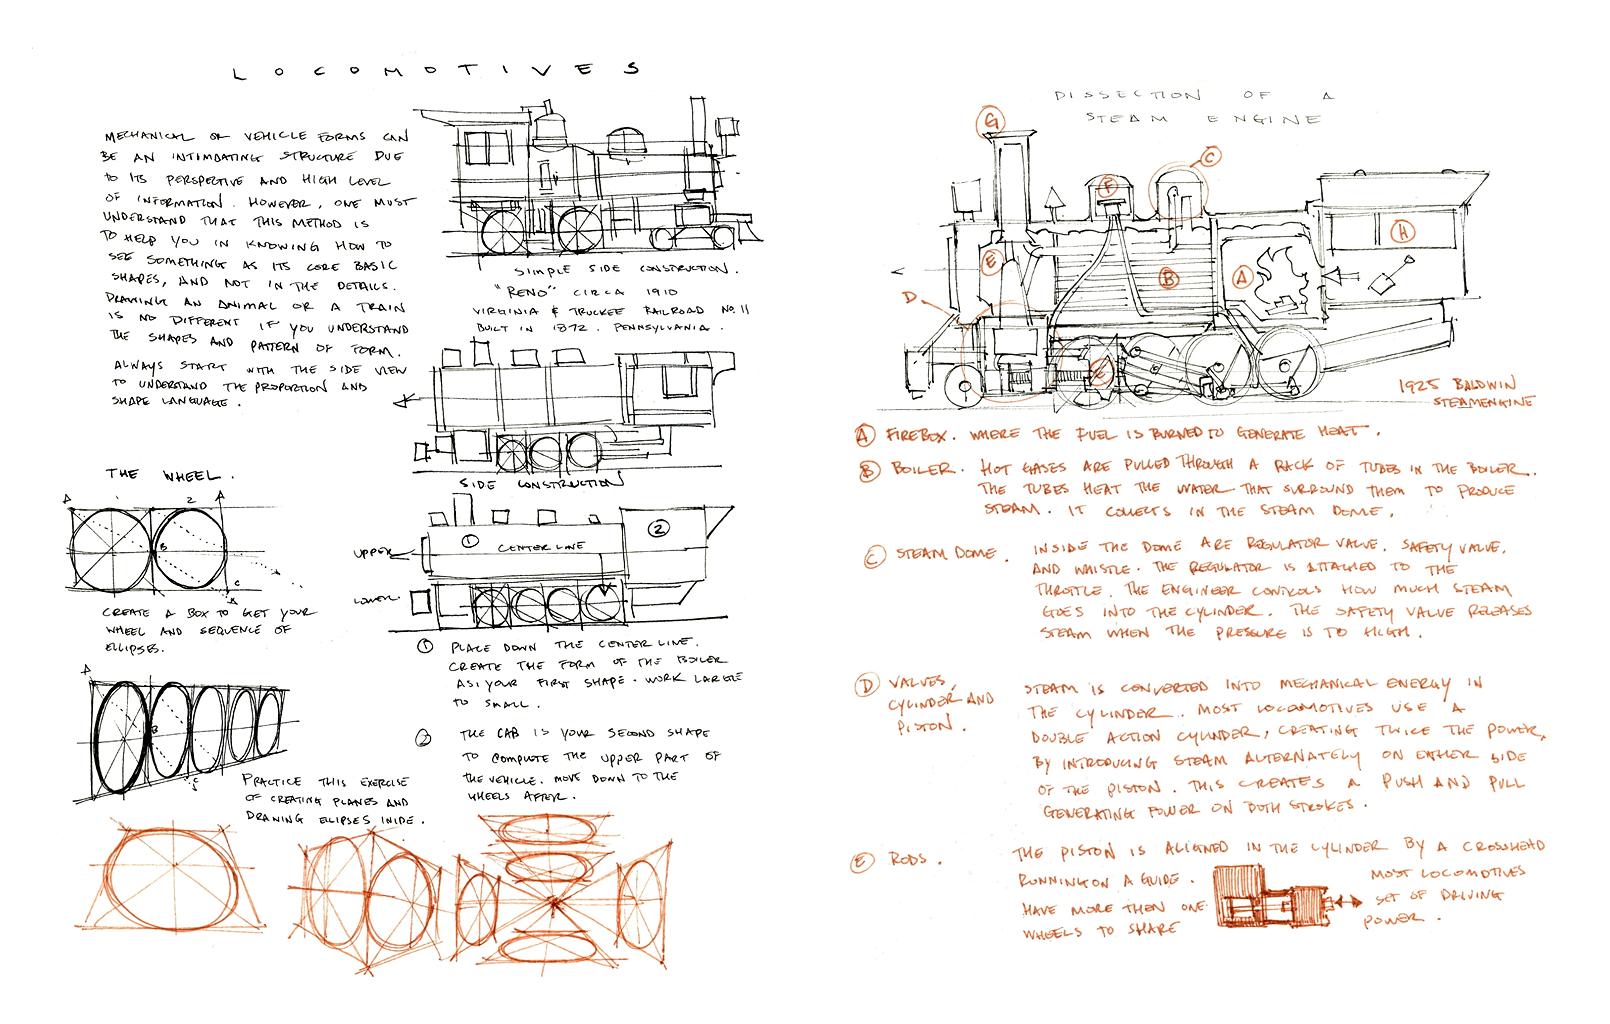 LOCOMOTIVES
MECHANICAL OR VEHICLE FORMS CAN
BE AN INTIMIDATING STRUCTURE DUE
TO ITS PERSPECTIVE AND HIGH LEVEL
OF INFORMATION. HOWEVER, ONE MUST
UNDERSTAND THAT THIS METHOD IS
TO HELP YOU IN KNOWING HOW TO
SEE SOMETHING AS ITS CORE BASIC
SHAPES, AND NOT IN THE DETAILS.
DRAWING AN ANIMAL OR A TRAIN
IS NO DIFFERENT IF YOU UNDERSTAND
THE SHAPES AND PATTERN OF FORM.
ALWAYS START WITH THE SIDE VIEW
TO UNDERSTAND THE PROPORTION AND
SHAPE LANGUAGE.
SIMPLE SIDE CONSTRUCTION.
"RENO" CIRCA 1910
VIRGINIA & TRUCKEE RAILROAD NO. 11
BUILT IN 1872. PENNSYLVANIA.
SIDE CONSTRUCTION
THE WHEEL.
A
2
B
C
CREATE A BOX TO GET YOUR
WHEEL AND SEQUENCE OF
ELLIPSES.
A
B
C
PRACTICE THIS EXERCISE
OF CREATING PLANES AND
DRAWING ELLIPSES INIDE.
UPPER
LOWER
1
CENTER LINE
2
1 PLACE DOWN THE CENTER LINE.
CREATE THE FORM OF THE BOILER
AS YOUR FIRST SHAPE. WORK LARGE
TO SMALL.
2 THE CAB IS YOUR SECOND SHAPE
TO COMPLETE THE UPPER PART OF
THE VEHICLE. MOVE DOWN TO THE
WHEELS AFTER.
DISSECTION OF A
STEAM ENGINE
G
C
F
H
E
A
B
D
E
1925 BALDWIN
STEAMENGINE
A FIREBOX. WHERE THE FUEL IS BURNED TO GENERATE HEAT.
B BOILER. HOT GASES ARE PULLED THROUGH A RACK OF TUBES IN THE BOILER.
THE TUBES HEAT THE WATER THAT SURROUND THEM TO PRODUCE
STEAM. IT COLLECTS IN THE STEAM DOME.
C STEAM DOME. INSIDE THE DOME ARE REGULATOR VALVE. SAFETY VALVE.
AND WHISTLE. THE REGULATOR IS ATTACHED TO THE
THROTTLE. THE ENGINEER CONTROLS HOW MUCH STEAM
GOES INTO THE CYLINDER. THE SAFETY VALVE RELEASES
STEAM WHEN THE PRESSURE IS TO HIGH.
D VALVES,
CYLINDER AND
PISTON.
STEAM IS CONVERTED INTO MECHANICAL ENERGY IN
THE CYLINDER. MOST LOCOMOTIVES USE A
DOUBLE ACTION CYLINDER, CREATING TWICE THE POWER,
BY INTRODUCING STEAM ALTERNATELY ON EITHER SIDE
OF THE PISTON. THIS CREATES A PUSH AND PULL
GENERATING POWER ON BOTH STROKES.
E RODS. THE PISTON IS ALIGNED IN THE CYLINDER BY A CROSSHEAD
RUNNING ON A GUIDE. MOST LOCOMOTIVES
HAVE MORE THEN ONE SET OF DRIVING
WHEELS TO SHARE POWER.